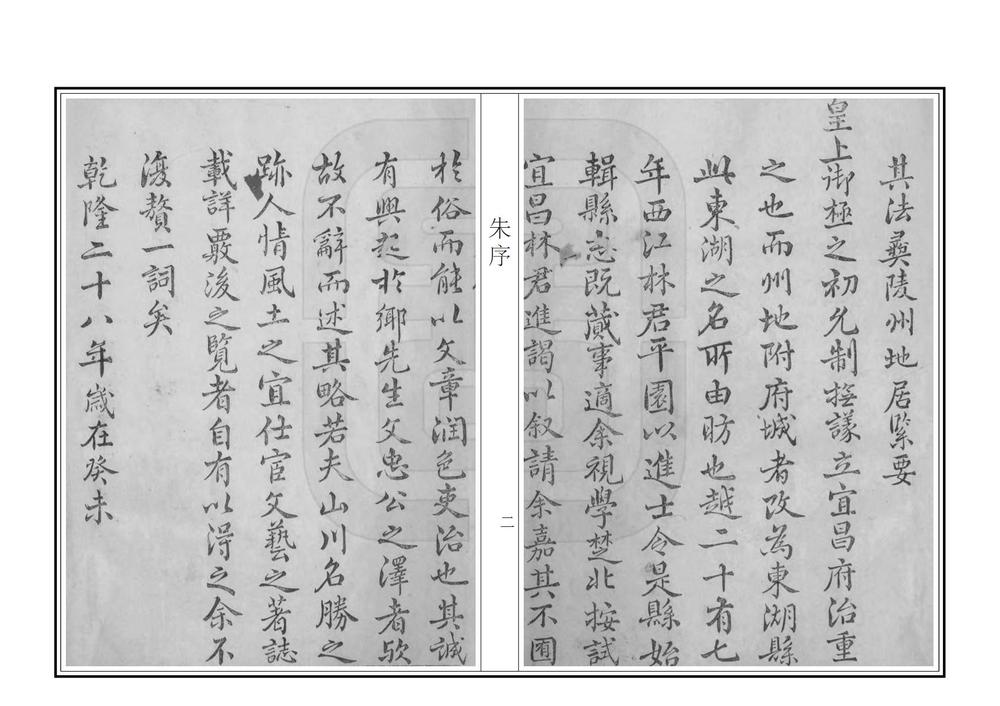 其法彝陵州地居緊要
皇上御極之初允制撫議立宜昌府治重
之也而州地附府城者改為東湖縣
此東湖之名所由昉也越二十有七
年西江林君平園以進士令是縣始
輯縣志既蕆事適余視學楚北按試
宜昌林君進謁以叙請余嘉其不囿
朱序
二
於俗而能以文章潤色吏治也其誠
有興起於鄉先生文忠公之澤者歟
故不辭而述其略若夫山川名勝之
跡人情風土之宜仕宦文藝之著誌
載詳覈後之覽者自有以得之余不
復贅一詞矣
乾隆二十八年歲在癸未